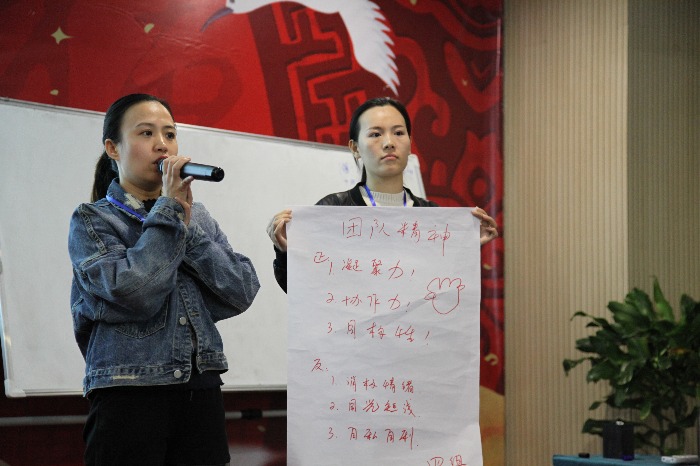 团队精神
正:1、凝聚力!
2、协作力!
3、目标性!
反:
1、消极情绪
2、目光短浅
3、自私自利.
四组